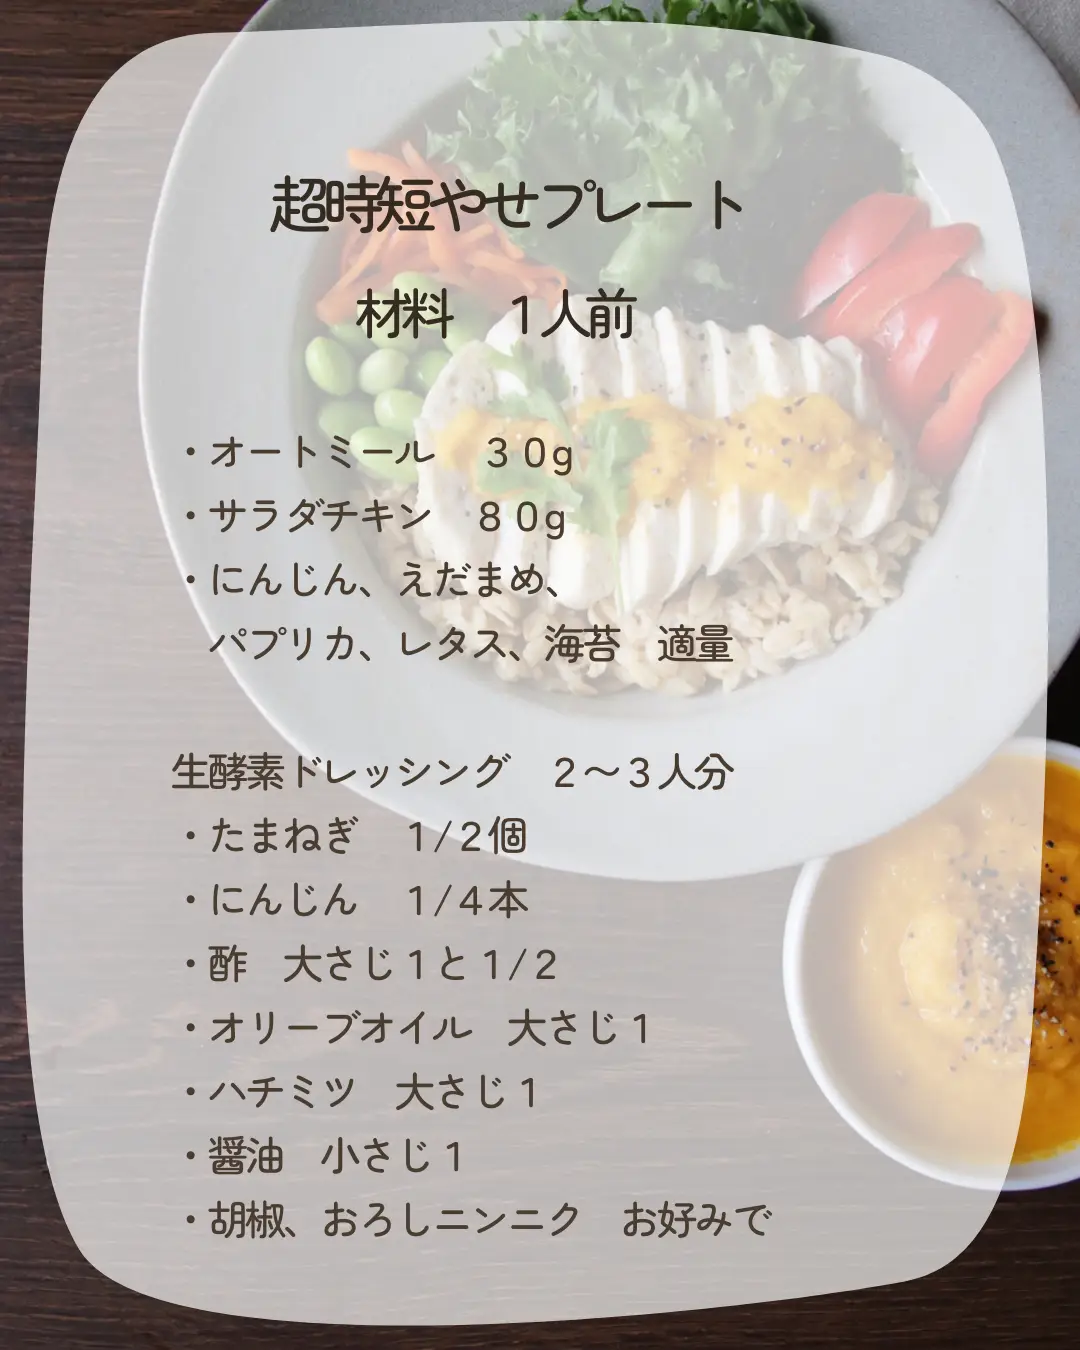 超時短やせプレート
材料　１人前
・オートミール　３０g
・サラダチキン　８０g
・にんじん、えだまめ、
パプリカ、レタス、海苔　適量
生酵素ドレッシング　２〜３人分
・たまねぎ　１/２個
・にんじん　１/４本
・酢　大さじ１と１/２
・オリーブオイル　大さじ１
・ハチミツ　大さじ１
・醤油　小さじ１
・胡椒、おろしニンニク　お好みで